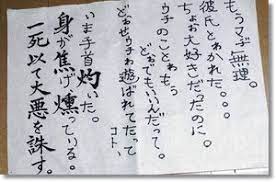 もうマヂ無理。
彼氏とわかれた。。。
ちょお大好きだったのに。
ウチのことゎもぅ
どぉでもいいんだって。
どぉせウチゎ遊ばれてたってコト、
いま手首灼いた。
身が焦げ燻っている。
一死以て大悪を誅す。